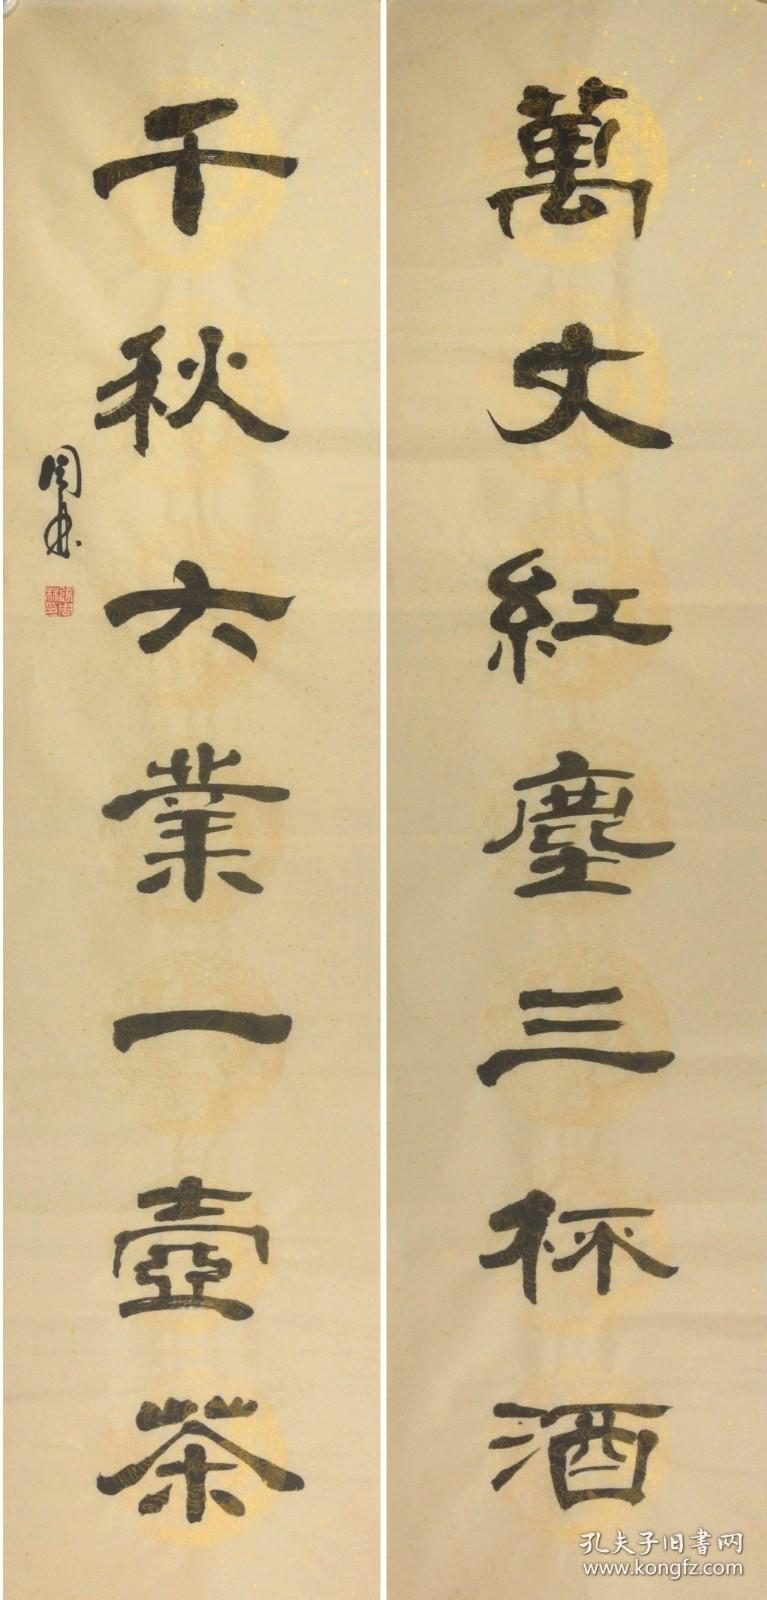 萬丈紅塵三杯酒
千秋大業一壺茶
周林
孔夫子旧書网
www.kongfz.com